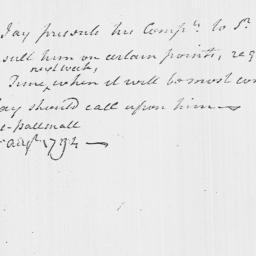 Jay presents his Comp.ts to S.r
sult him on certain points, req
next week,
Time, when it will be most con
Jay should call upon him —
l-pallmall
Aug.t 1794 —